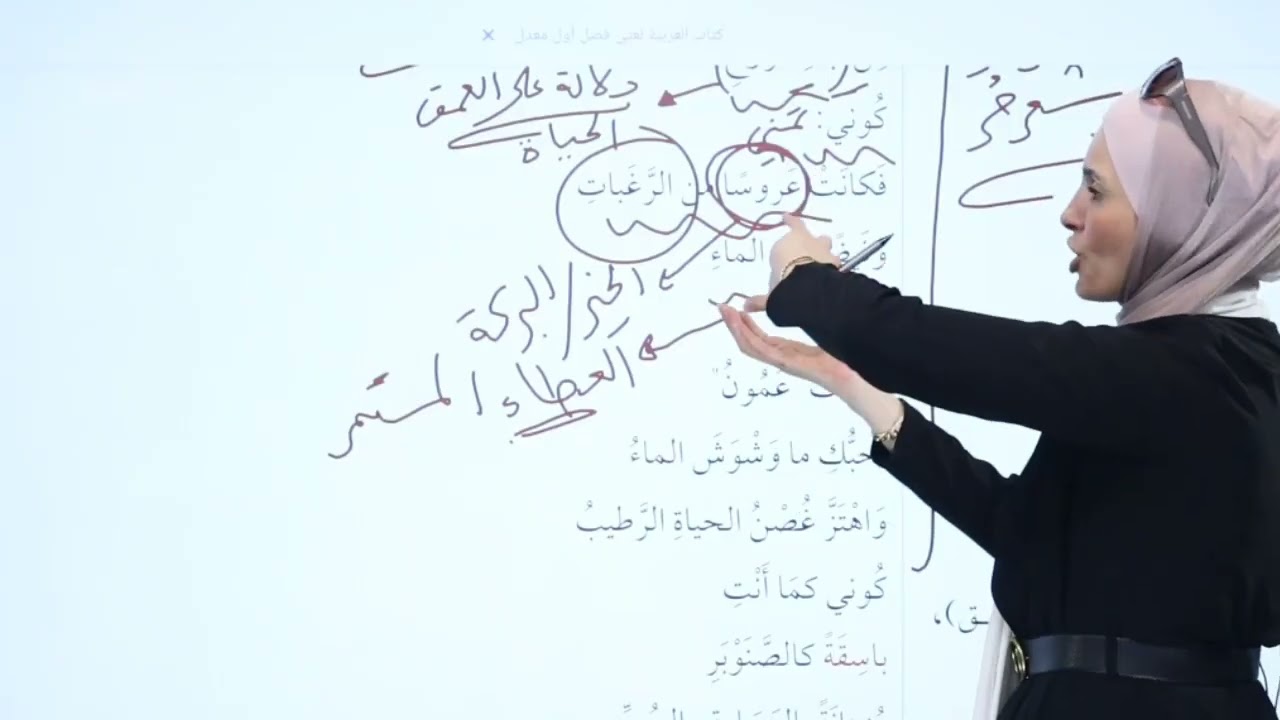 كتاب العربية لغتي فصل أول معدل ×
دلالة على العمق
الحياة
شعر حر
كُوني: تمني
فَكانَتْ عَروسًا من الرَّغَباتِ
الماءِ
الخير / البركة
العطاء المستمر
عَمُونُ"
حبُّكِ ما وَشْوَشَ الماءُ
وَاهْتَزَّ غُصْنُ الحياةِ الرَّطيبُ
كُوني كمَا أَنْتِ
باسِقَةً كالصَّنَوْبَرِ